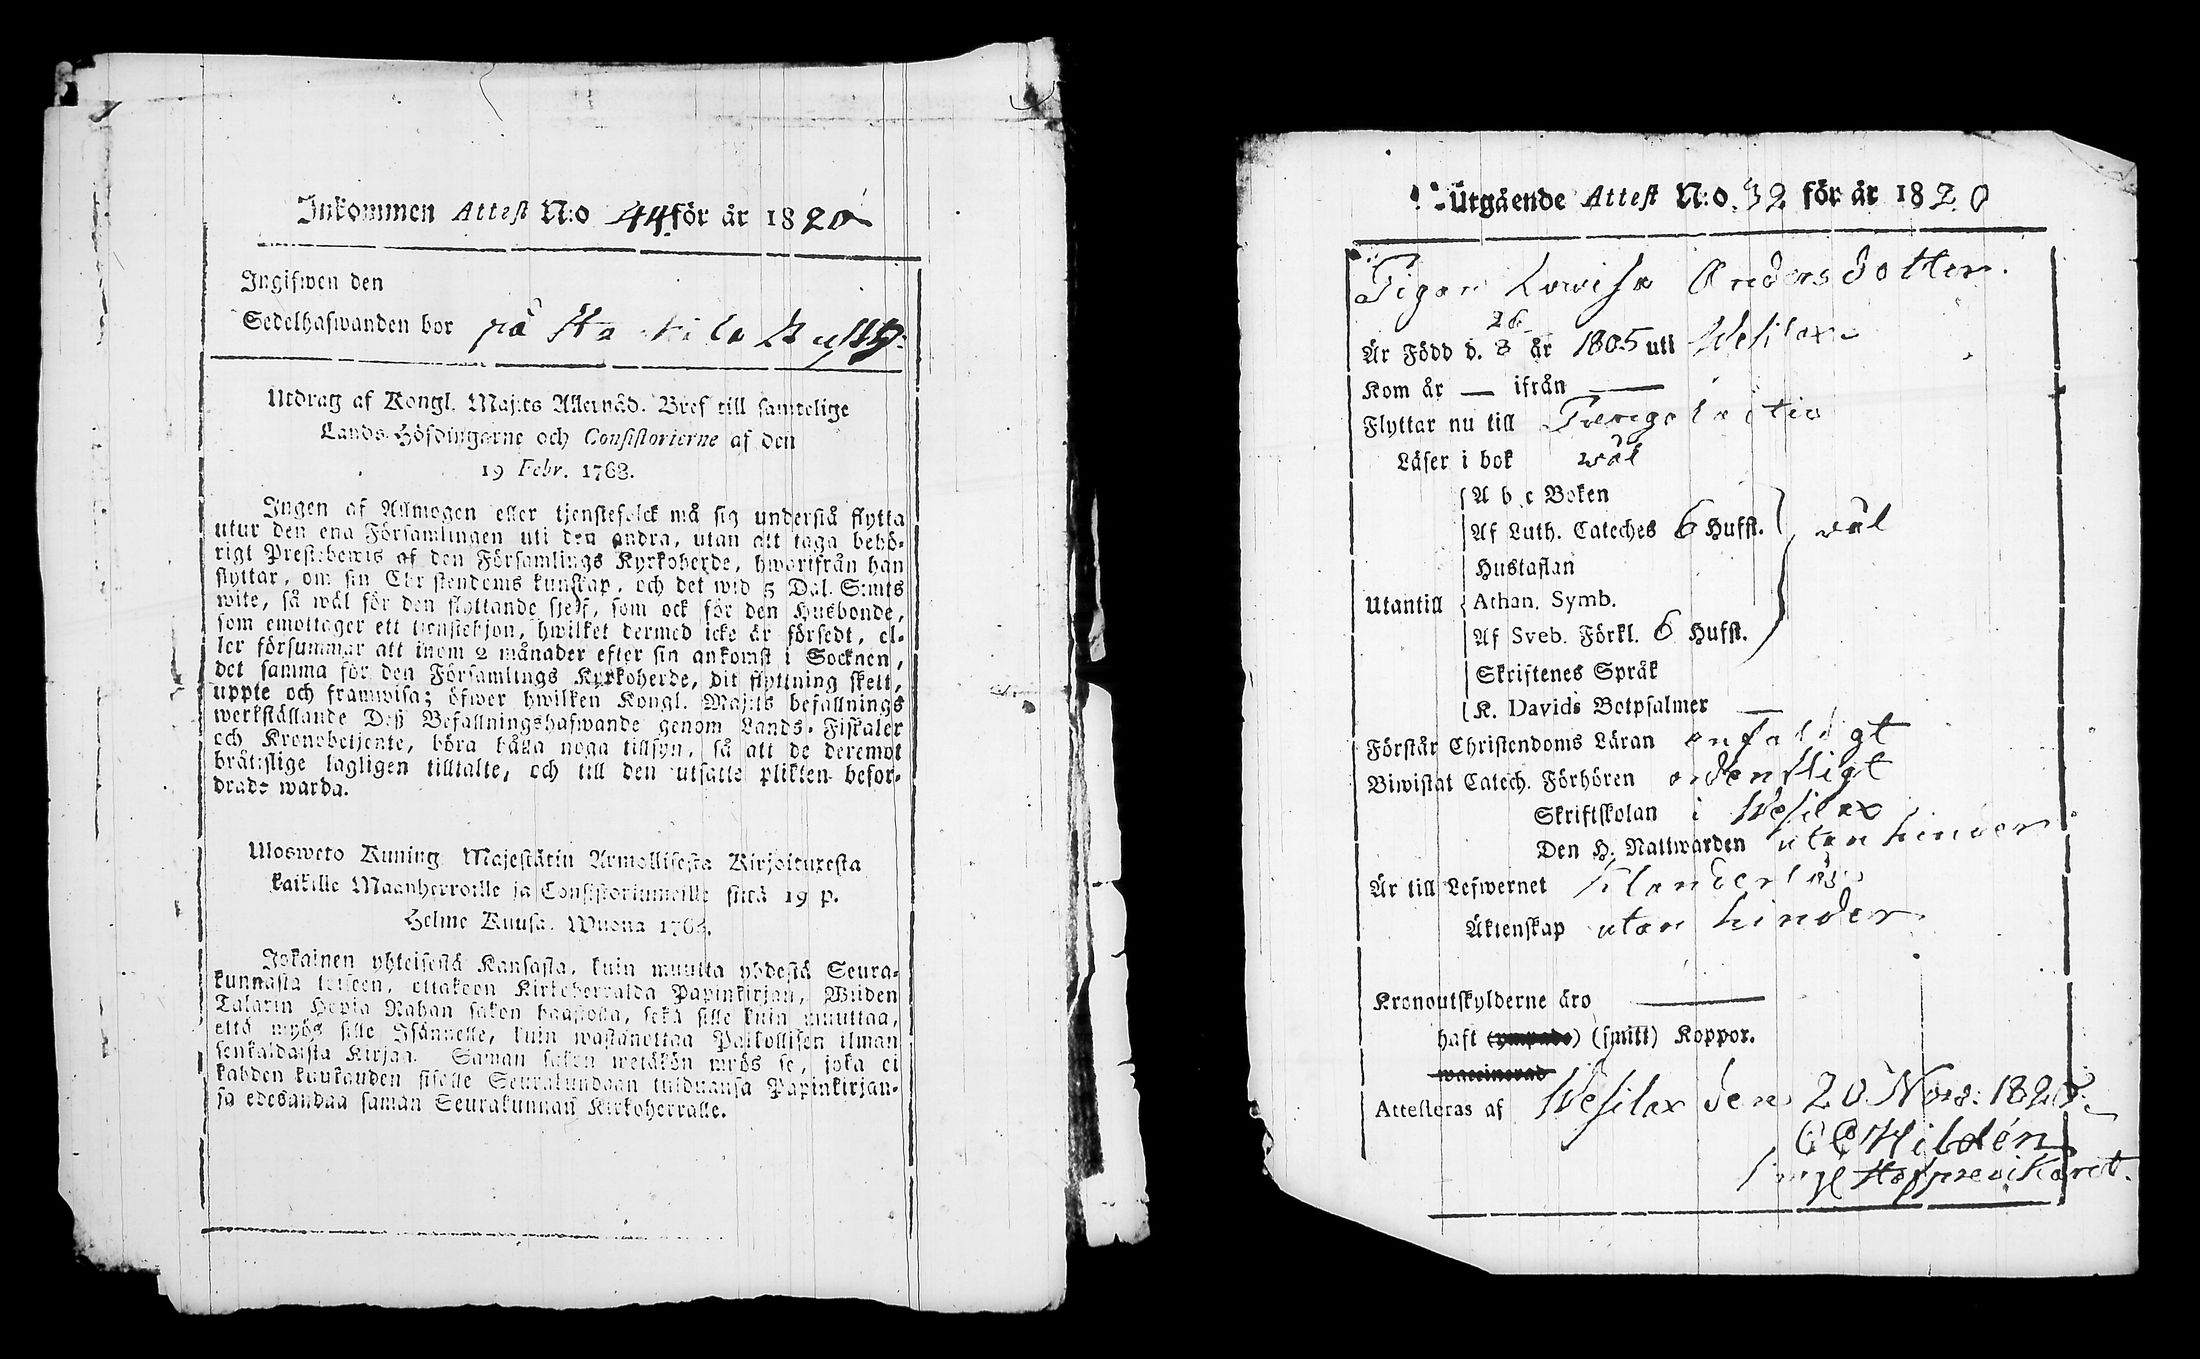 Inkommen Attest N:o 44 för år 1820
Ingifwen den
Sedelhafwanden bor på
Utdrag af Kongl. Maj:ts Allernåd. Bref till samtelige
Lands-Höfdingarne och Consistorierne af den
19 Febr. 1763.
Ingen af Allmogen eller tjenstefolck må sig understå flytta
utur den ena Församlingen uti den andra, utan att taga behö-
rigt Prestebewis af den Församlings Kyrkoherde, hwarifrån han
flyttar, om sin Christendoms kunskap, och det wid 5 Dal. S:mts
wite, så wäl för den flyttande sjelf, som ock för den Husbonde,
som emottager ett tjenstehjon, hwilket dermed icke är försedt, el-
ler försummar att inom 2 månader efter sin ankomst i Socknen,
det samma för den Församlings Kyrkoherde, dit flyttning skett,
uppte och framwisa; öfwer hwilken Kongl. Maj:ts befallnings
werkställande Deß Befallningshafwande genom Lands-Fiskaler
och Kronobetjente, böra hålla noga tillsyn, så att de deremot
brättslige lagligen tilltalte, och till den utsatte plikten befor-
drade warda.
Ulosweto Kuning. Majestätin Armollisesta Kirjoituxesta
kaikille Maanherroille ja Consistoriumeille siitä 19 p.
Helme Kuusa. Wuona 1763.
Jokainen yhteisestä Kansasta, kuin muutta yhdestä Seura-
kunnasta toiseen, ottakoon Kirkoherralda Papinkirjan, Wiiden
Talarin Hopia Rahan sakon haastolla, sekä sille kuin muuttaa,
että myös sille Isännelle, kuin wastanottaa Palkollisen ilman
senkaldaista Kirjaa. Saman sakon wetäkön myös se, joka ei
kahden kuukauden sisälle Seurakundaan tulduansa Papinkirjan-
sa edesandaa saman Seurakunnan Kirkoherralle.
Utgående Attest N:o 32 för år 1820
Pigan Lowisa Andersdotter.
26
Är Född d. 3 år 1805 uti Wesilax
Kom år — ifrån —
Flyttar nu till
Läser i bok wäl
A b c Boken
Af Luth. Cateches 6 Hufst. wäl
Hustaflan
Utantill Athan. Symb.
Af Sveb. Förkl. 6 Hufst.
Skriftenes Språk
K. Davids Botpsalmer —
Förstår Christendoms Läran enfaldigt
Biwistat Catech. Förhören ordentligt
Skriftskolan i Wesilax
Den H. Nattwarden utan hinder
Är till Lefwernet klanderlös
Äktenskap utan hinder
Kronoutskylderne äro —
haft (ympade) (smitt) Koppor.
waccinerad
Attesteras af Wesilax den 20 Nov: 1820.
Hildén